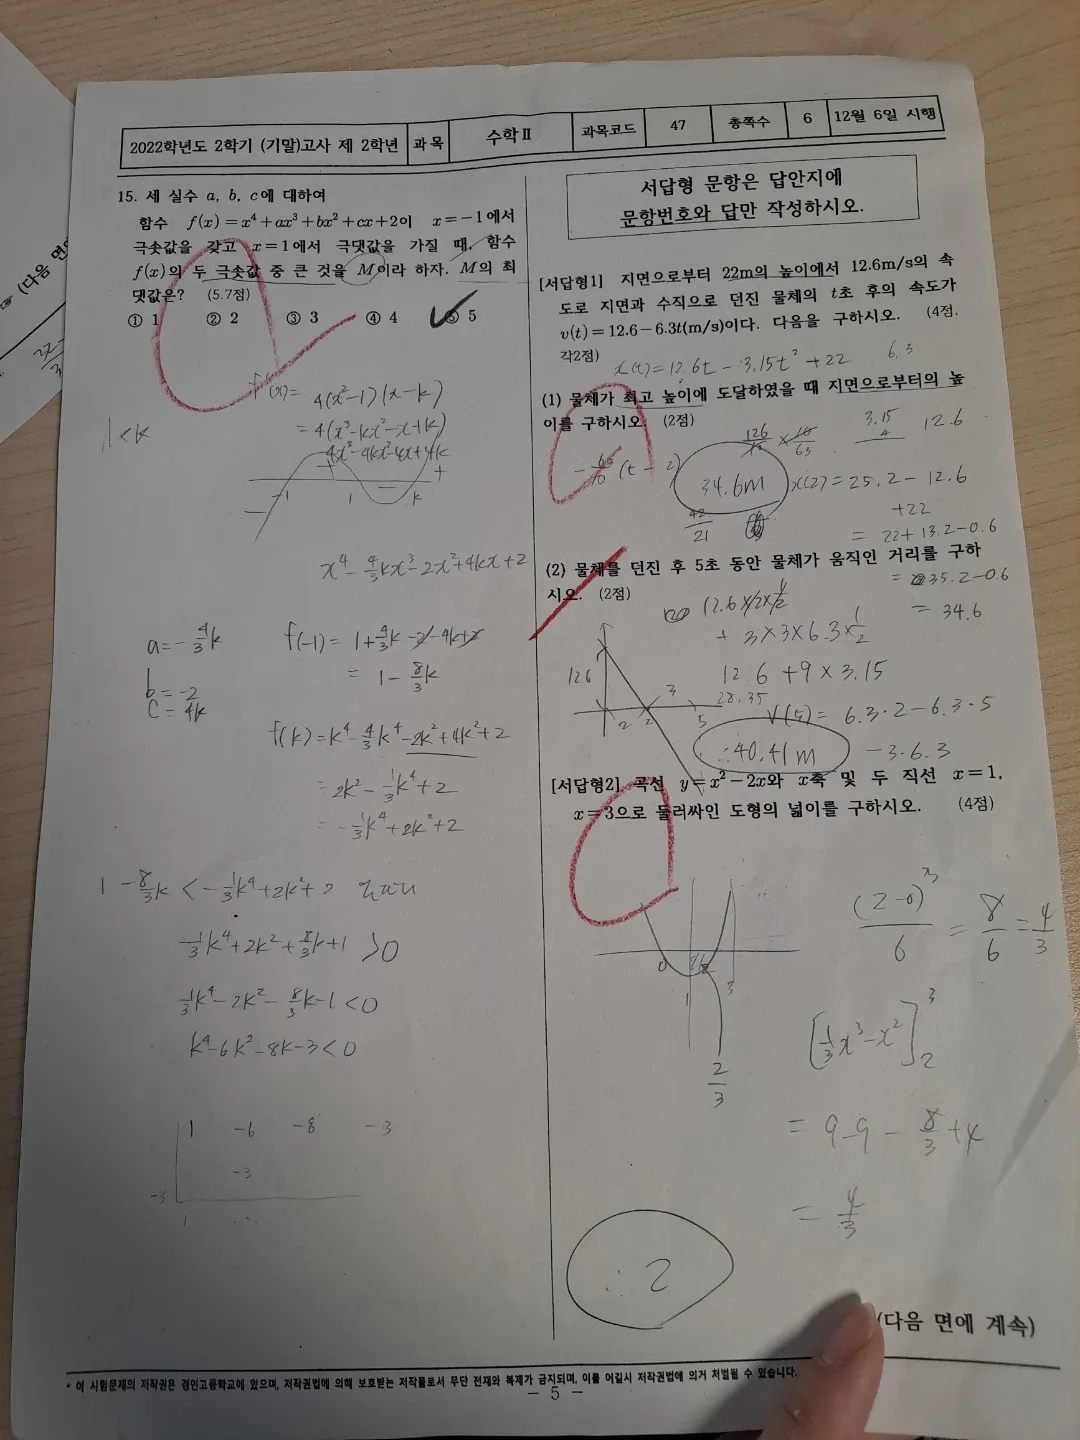 2022학년도 2학기 (기말)고사 제 2학년 과목 수학Ⅱ 과목코드 47 총쪽수 6 12월 6일 시행
15. 세 실수 a, b, c에 대하여
함수 f(x)=x⁴+ax³+bx²+cx+2이 x=-1에서
극솟값을 갖고 x=1에서 극댓값을 가질 때, 함수
f(x)의 두 극솟값 중 큰 것을 M이라 하자. M의 최
댓값은? (5.7점)
① 1 ② 2 ③ 3 ④ 4 ⑤ 5
f'(x)= 4(x²-1)(x-k)
1<k
= 4(x³-kx²-x+k)
4x³-4kx²-4x+4k
-1 1 k
x⁴-4/3kx³-2x²+4kx+2
a=-4/3k
b=-2
c=4k
f(-1)= 1+4/3k-2-4k+2
= 1-8/3k
f(k)=k⁴-4/3k⁴-2k²+4k²+2
= 2k²-1/3k⁴+2
= -1/3k⁴+2k²+2
1-8/3k < -1/3k⁴+2k²+2
-1/3k⁴+2k²+8/3k+1 >0
1/3k⁴-2k²-8/3k-1<0
k⁴-6k²-8k-3<0
1 -6 -8 -3
-3
-3
1
서답형 문항은 답안지에
문항번호와 답만 작성하시오.
[서답형1] 지면으로부터 22m의 높이에서 12.6m/s의 속
도로 지면과 수직으로 던진 물체의 t초 후의 속도가
v(t)=12.6-6.3t(m/s)이다. 다음을 구하시오. (4점,
각2점)
x(t)=12.6t-3.15t²+22 6.3
(1) 물체가 최고 높이에 도달하였을 때 지면으로부터의 높
이를 구하시오. (2점)
3.15 12.6
-63/10(t-2)
34.6m
x(2)=25.2-12.6
+22
42/21
= 22+13.2-0.6
(2) 물체를 던진 후 5초 동안 물체가 움직인 거리를 구하
시오. (2점)
= 35.2-0.6
= 34.6
12.6×2×1/2
+ 3×3×6.3×1/2
12.6
12.6+9×3.15
28.35
2 2 3 5
v(5)= 6.3·2-6.3·5
-3·6.3
∴40.41m
[서답형2] 곡선 y=x²-2x와 x축 및 두 직선 x=1,
x=3으로 둘러싸인 도형의 넓이를 구하시오. (4점)
(2-0)³/6 = 8/6 = 4/3
0 1 2 3
2/3
[1/3x³-x²]³₂
= 9-9-8/3+4
= 4/3
∴ 2
(다음 면에 계속)
* 이 시험문제의 저작권은 경인고등학교에 있으며, 저작권법에 의해 보호받는 저작물로서 무단 전재와 복제가 금지되며, 이를 어길시 저작권법에 의거 처벌될 수 있습니다.
- 5 -
(다음 면에